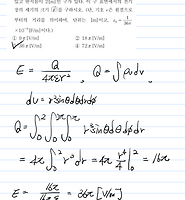 없고 반지름이 2[m]인 구가 있다. 이 구 표면에서의 전기
장의 세기의 크기 E를 구하시오. (단, 기호 r은 원점으로
부터의 거리를 의미하며, 단위는 [m]이고, ε₀ = 1/36π
×10⁻⁹[F/m]이다.)
① 9π [V/m] ② 18π [V/m]
③ 36π [V/m] ④ 72π [V/m]
E = Q/4πεr² , Q = ∫ρᵥdv,
dv = r²sinθdθdφdr
Q = ∫₀²∫₀^π∫₀^2π r²sinθdθdφdr
= 4π∫₀² r³dr = 4π r⁴/4 |₀² = 16π
E = 16π/16πε = 36π [V/m]